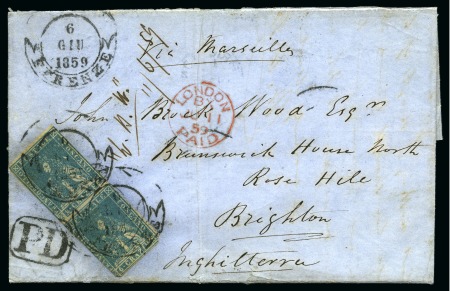 6
GIU
1859
FIRENZE
Via Marseilles
LONDON
PAID
John Brock Wood Esqr
Brunswick House North
Rose Hill
Brighton
Inghilterra
PD